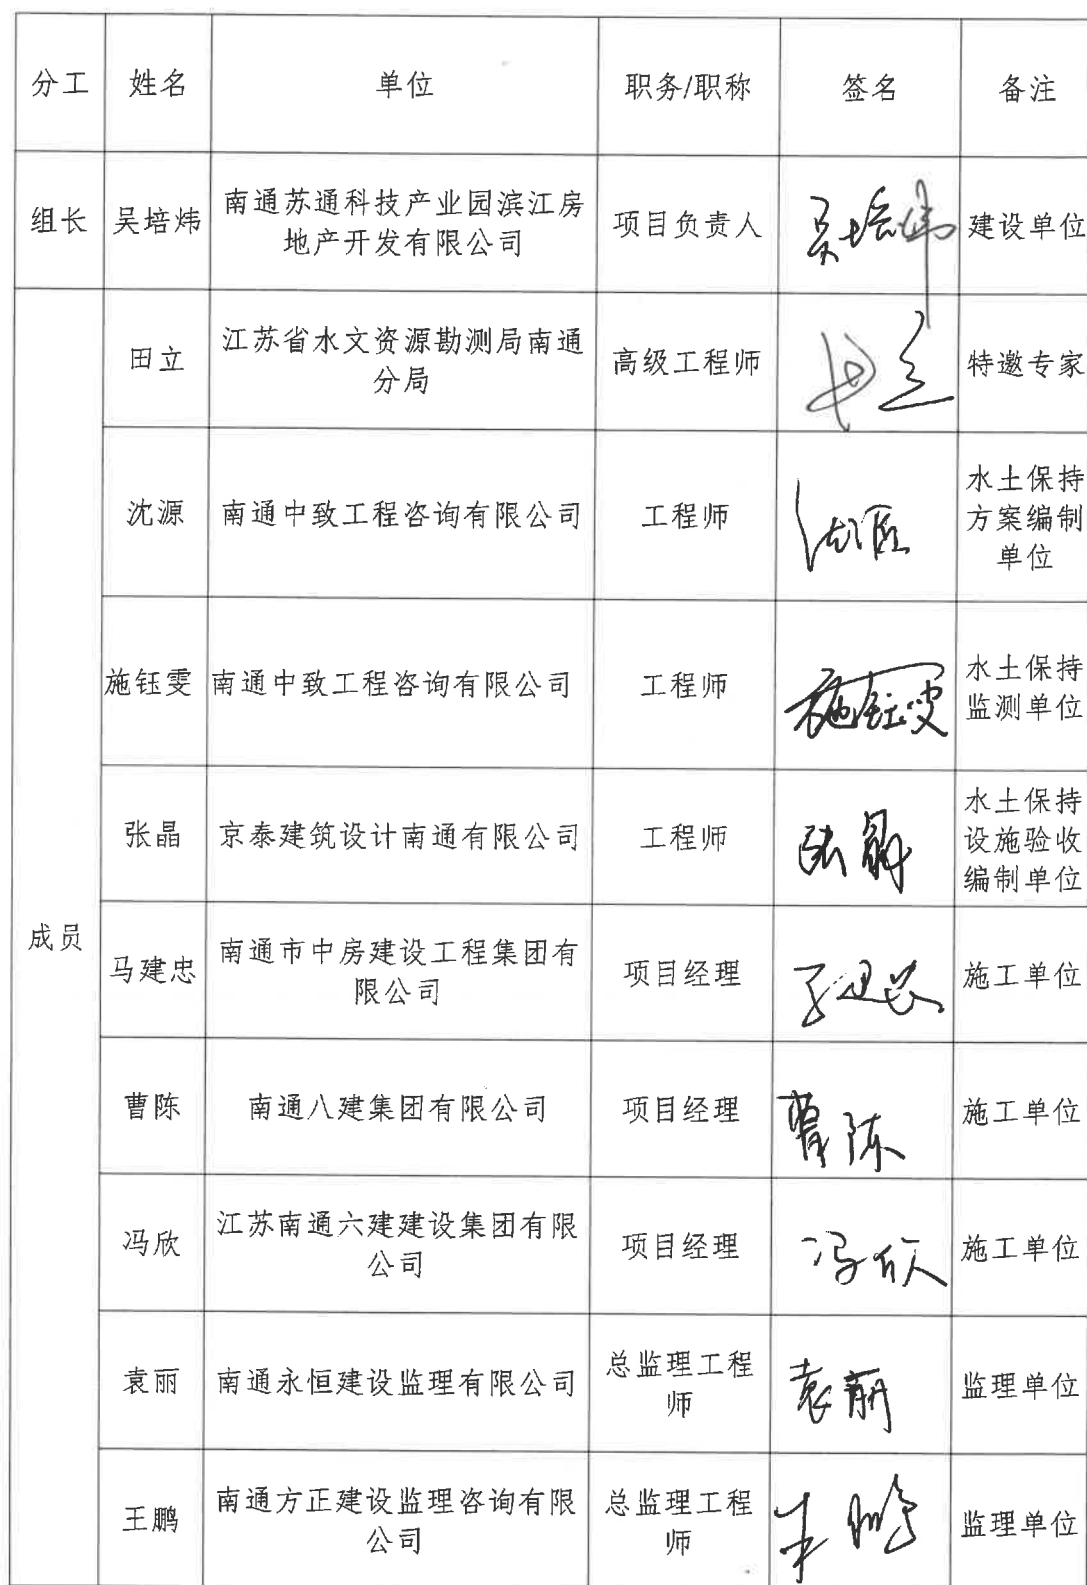 分工 姓名 单位 职务/职称 签名 备注
组长 吴培炜 南通苏通科技产业园滨江房 项目负责人 吴培炜 建设单位
地产开发有限公司
成员
田立 江苏省水文资源勘测局南通 高级工程师 田立 特邀专家
分局
沈源 南通中致工程咨询有限公司 工程师 沈源 水土保持
方案编制
单位
施钰雯 南通中致工程咨询有限公司 工程师 施钰雯 水土保持
监测单位
张晶 京泰建筑设计南通有限公司 工程师 水土保持
设施验收
编制单位
马建忠 南通市中房建设工程集团有 项目经理 马建忠 施工单位
限公司
曹陈 南通八建集团有限公司 项目经理 曹陈 施工单位
冯欣 江苏南通六建建设集团有限 项目经理 冯欣 施工单位
公司
袁丽 南通永恒建设监理有限公司 总监理工程 袁丽 监理单位
师
王鹏 南通方正建设监理咨询有限 总监理工程 王鹏 监理单位
公司 师